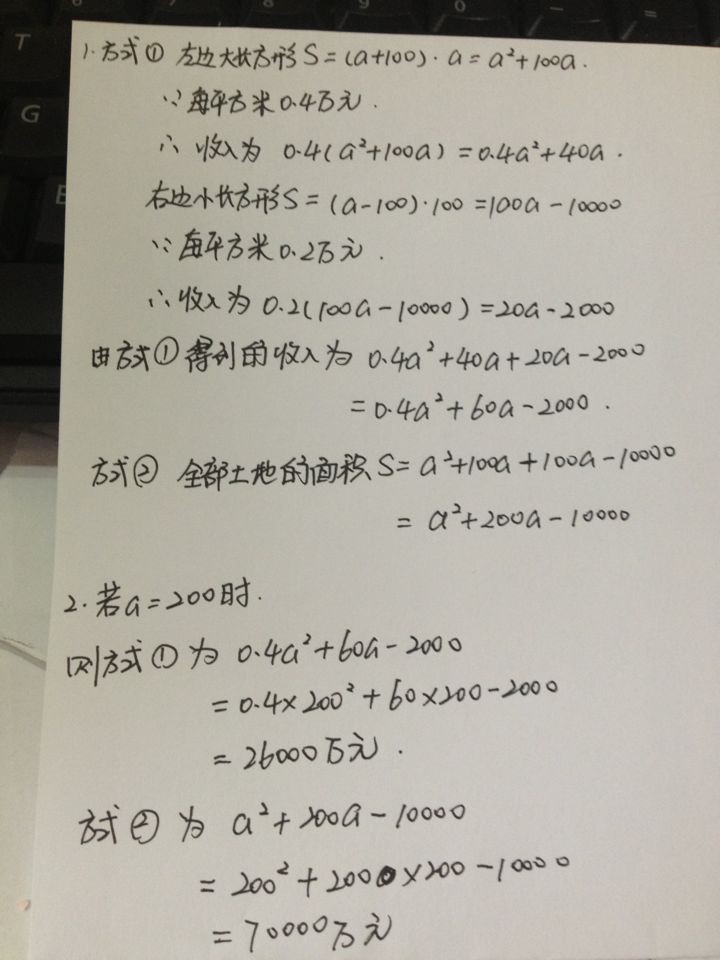 T
G
1. 方式① 左边大长方形 S=(a+100)·a=a²+100a.
∵ 每平方米0.4万元.
∴ 收入为 0.4(a²+100a)=0.4a²+40a.
右边小长方形 S=(a-100)·100=100a-10000
∵ 每平方米0.2万元.
∴ 收入为 0.2(100a-10000)=20a-2000
由方式①得到的收入为 0.4a²+40a+20a-2000
=0.4a²+60a-2000.
方式② 全部土地的面积 S=a²+100a+100a-10000
=a²+200a-10000
2. 若a=200时.
则方式①为 0.4a²+60a-2000
=0.4×200²+60×200-2000
=26000万元.
方式②为 a²+200a-10000
=200²+200×200-10000
=70000万元